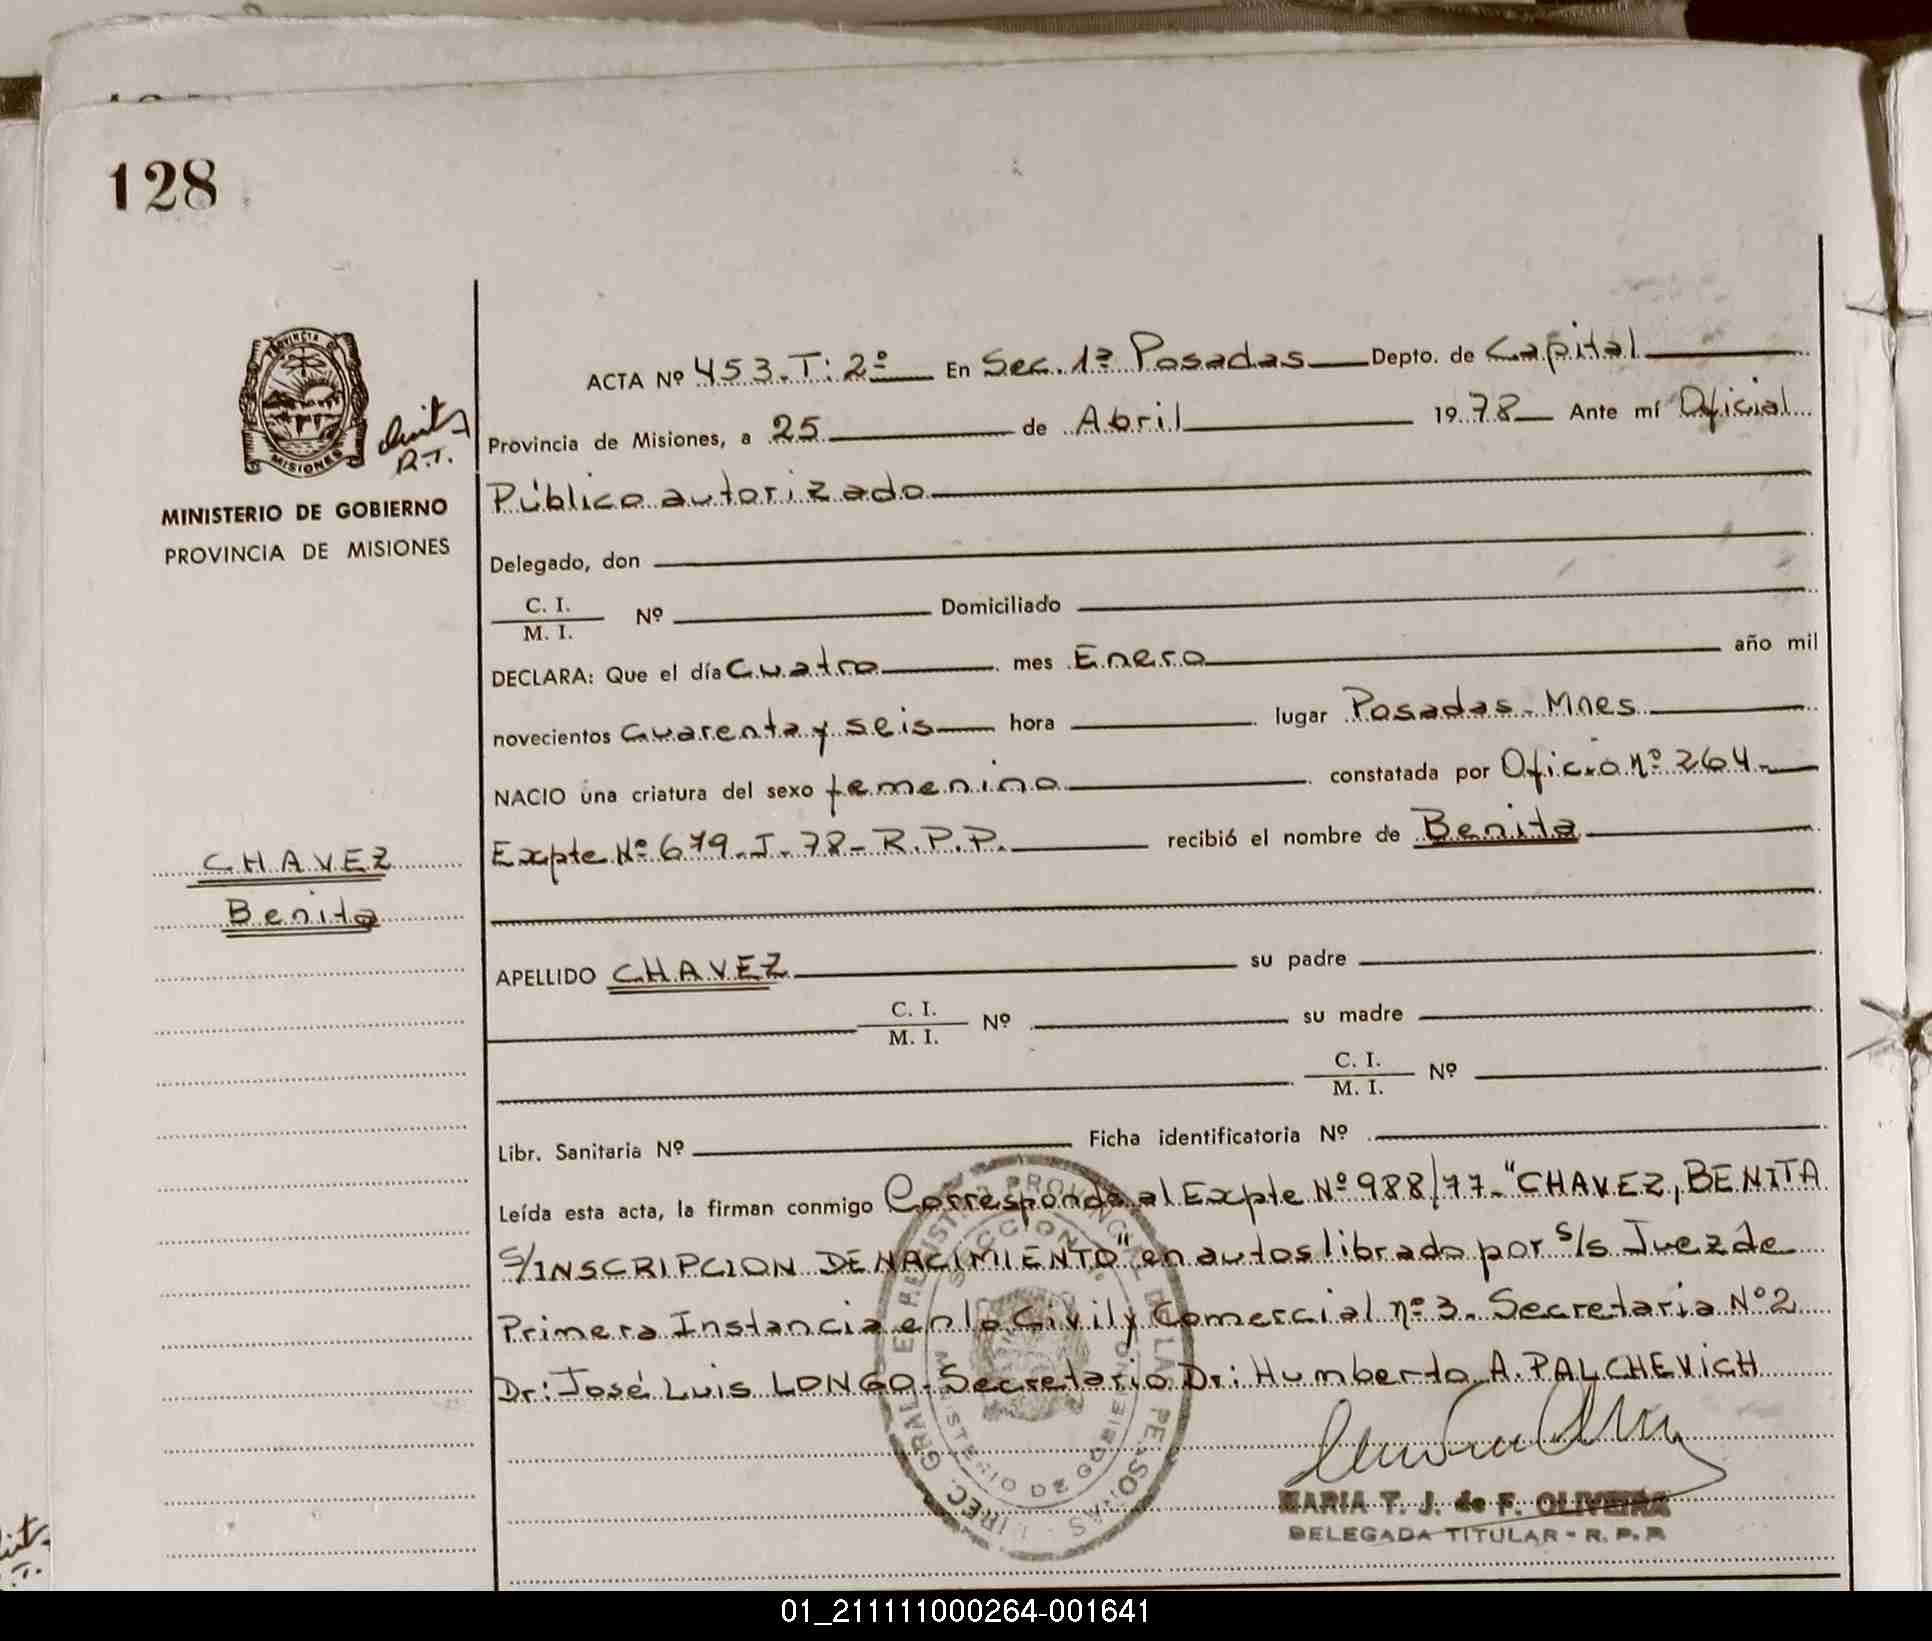 128
PROVINCIA DE
MISIONES
R.T.
MINISTERIO DE GOBIERNO
PROVINCIA DE MISIONES
CHAVEZ
Benita
ACTA Nº 453.T: 2º En Sec. 1ª Posadas Depto. de Capital
Provincia de Misiones, a 25 de Abril 1978 Ante mí Oficial
Público autorizado
Delegado, don
C. I.
M. I. Nº Domiciliado
DECLARA: Que el día Cuatro mes Enero año mil
novecientos cuarenta y seis hora lugar Posadas - Mnes
NACIO una criatura del sexo femenino constatada por Oficio nº 264-
Expte Nº 679-J-78-R.P.P. recibió el nombre de Benita
APELLIDO CHAVEZ su padre
C. I.
M. I. Nº su madre
C. I.
M. I. Nº
Libr. Sanitaria Nº Ficha identificatoria Nº
Leída esta acta, la firman conmigo Corresponde al Expte Nº 988/77-"CHAVEZ, BENITA
S/INSCRIPCION DE NACIMIENTO" en autos librado por S/S Juez de
Primera Instancia en lo Civil y Comercial nº 3. Secretaria Nº 2
Dr: José Luis LONGO. Secretario Dr: Humberto A. PALCHEVICH
MARIA T. J. de F. OLIVEIRA
DELEGADA TITULAR - R. P. P
01_211111000264-001641